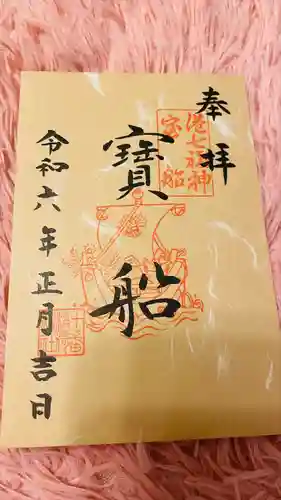 奉拝
港七福神
宝船
寶船
令和六年正月吉日